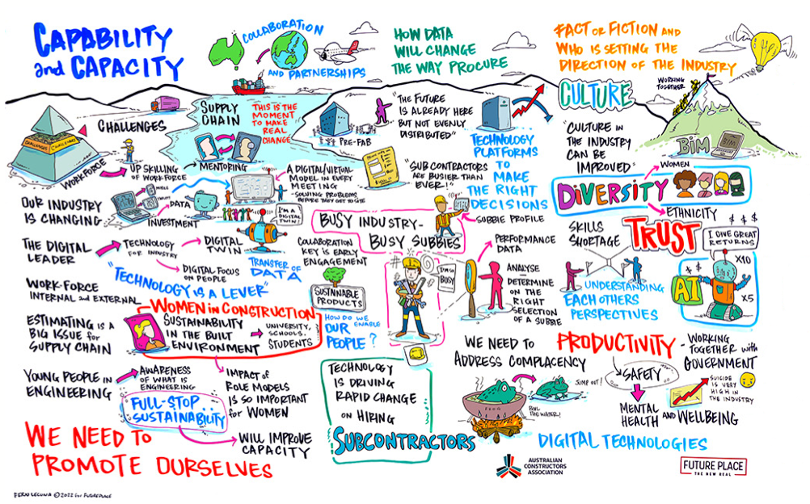 CAPABILITY
and CAPACITY
COLLABORATION
AND PARTNERSHIPS
HOW DATA
WILL CHANGE
THE WAY PROCURE
FACT OR FICTION AND
WHO IS SETTING THE
DIRECTION OF THE INDUSTRY
CHALLENGES
WORKFORCE
UP SKILLING
OF WORKFORCE
SUPPLY
CHAIN
THIS IS THE
MOMENT
TO MAKE
REAL
CHANGE
MENTORING
PRE-FAB
"THE FUTURE
IS ALREADY HERE
BUT NOT EVENLY
DISTRIBUTED"
"SUB CONTRACTORS
ARE BUSIER THAN
EVER!"
TECHNOLOGY
PLATFORMS
TO
MAKE
THE RIGHT
DECISIONS
CULTURE
WORKING
TOGETHER
"CULTURE IN
THE INDUSTRY
CAN BE
IMPROVED"
BIM
DIVERSITY
WOMEN
ETHNICITY
OUR INDUSTRY
IS CHANGING
DATA
INVESTMENT
A DIGITAL/VIRTUAL
MODEL IN EVERY
MEETING
- SOLVING PROBLEMS
BEFORE THEY GET TO SITE
I'M A
DIGITAL
TWIN!
THE DIGITAL
LEADER
TECHNOLOGY
FOR INDUSTRY
DIGITAL
TWIN
DIGITAL FOCUS
ON PEOPLE
TRANSFER OF
DATA
"TECHNOLOGY IS A LEVER"
COLLABORATION
KEY IS EARLY
ENGAGEMENT
SUSTAINABLE
PRODUCTS
BUSY INDUSTRY-
BUSY SUBBIES
SUBBIE PROFILE
PERFORMANCE
DATA
I'M SO
BUSY
ANALYSE
DETERMINE
ON THE
RIGHT
SELECTION
OF A SUBBIE
SKILLS
SHORTAGE
TRUST
$ $ $
I GIVE GREAT
RETURNS
UNDERSTANDING
EACH OTHERS
PERSPECTIVES
AI
X10
X5
WORK-FORCE
INTERNAL and EXTERNAL
ESTIMATING IS A
BIG ISSUE FOR
SUPPLY CHAIN
WOMEN IN CONSTRUCTION
SUSTAINABILITY
IN THE BUILT
ENVIRONMENT
UNIVERSITY,
SCHOOLS,
STUDENTS
HOW DO WE
ENABLE
OUR
PEOPLE?
YOUNG PEOPLE IN
ENGINEERING
AWARENESS
OF WHAT IS
ENGINEERING
IMPACT OF
ROLE MODELS
IS SO IMPORTANT
FOR WOMEN
FULL-STOP
SUSTAINABILITY
WILL IMPROVE
CAPACITY
TECHNOLOGY
IS DRIVING
RAPID CHANGE
ON HIRING
SUBCONTRACTORS
WE NEED TO
ADDRESS COMPLACENCY
JUMP OUT!
BOIL
THE WATER!
PRODUCTIVITY
- WORKING
TOGETHER with
GOVERNMENT
SAFETY
MENTAL
HEALTH AND WELLBEING
SUICIDE IS VERY
HIGH IN
THE INDUSTRY
DIGITAL TECHNOLOGIES
WE NEED TO
PROMOTE OURSELVES
AUSTRALIAN
CONSTRUCTORS
ASSOCIATION
FUTURE PLACE
THE NEW REAL
©2022 for FUTUREPLACE